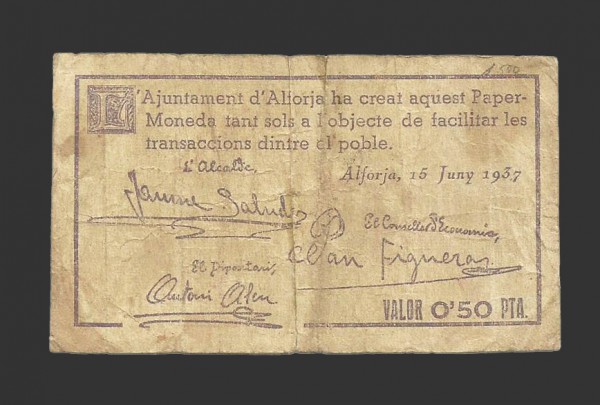 L'Ajuntament d'Alforja ha creat aquest Paper-
Moneda tant sols a l'objecte de facilitar les
transaccions dintre el poble.
L'Alcalde,
Alforja, 15 Juny 1937
Jaume Salud
El Conseller d'Economia,
Joan Figueras
El Dipositari,
Antoni Aleu
VALOR 0'50 PTA.